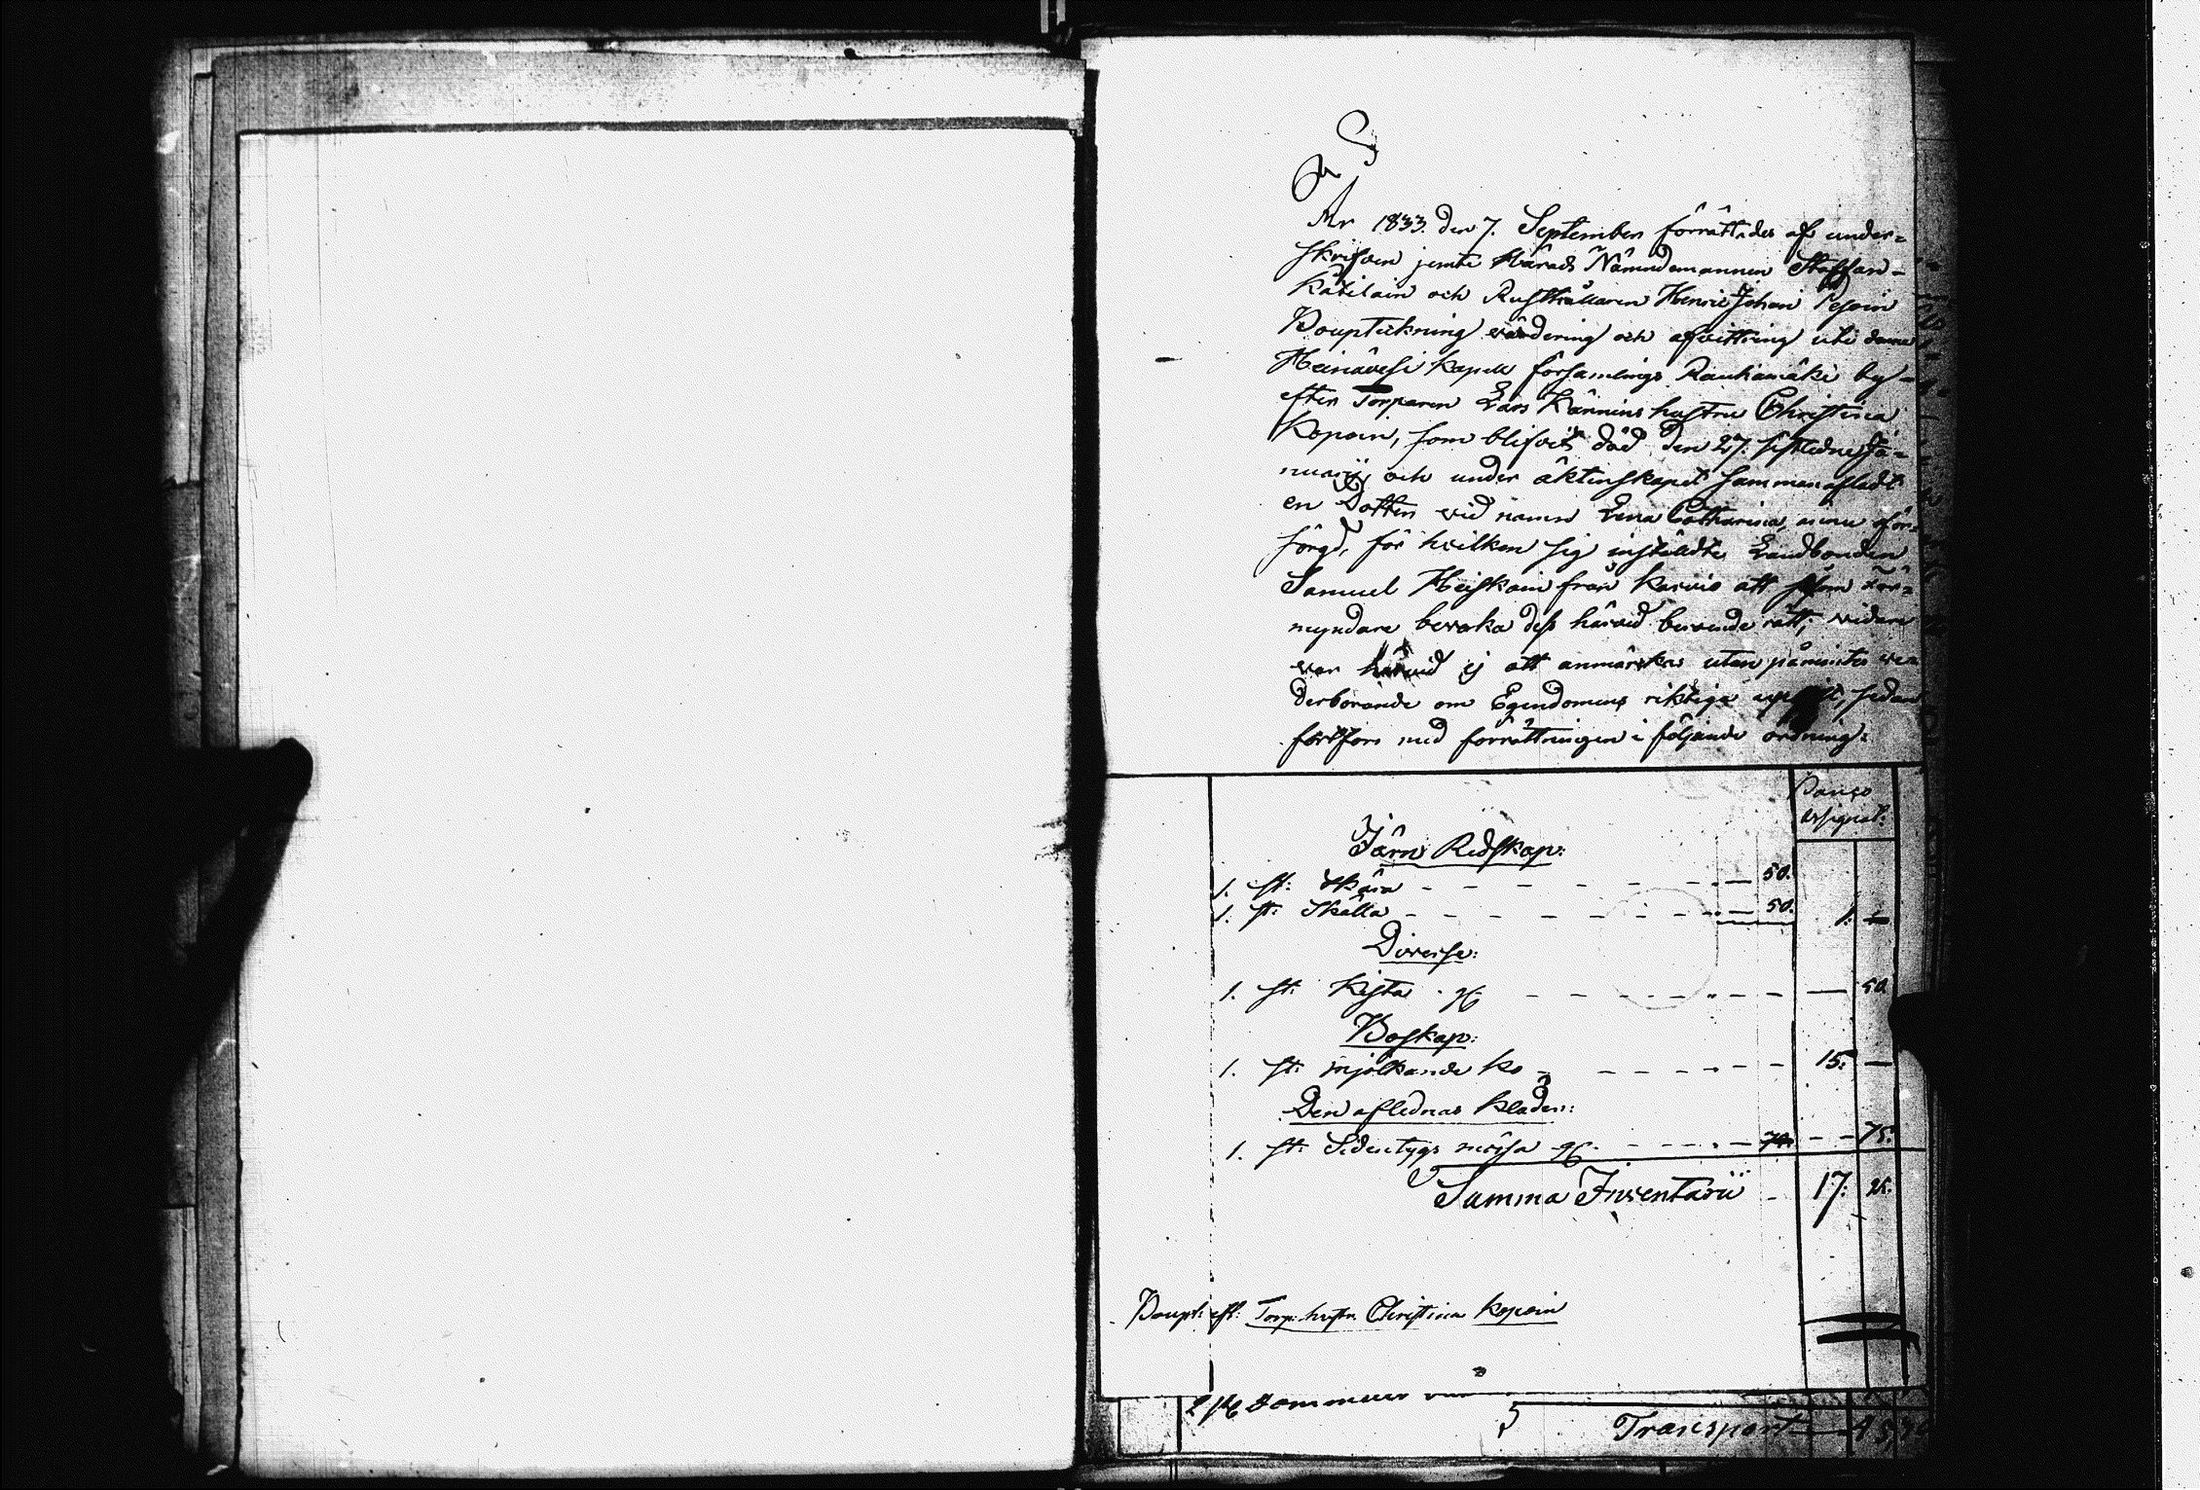 År 1833. den 7. September förrättades af under=
skrifven jemte Härads Nämndemannen Staffan
och Rusthållaren Henric Johan Pesoin
Bouptekning värdering och afvittring uti
Heinävesi Kapell församlings Rauhamäki by
efter Torparen Lars Kärnins hustru Christina
Kopoin, som blifvit död den 27. sistledne Ja=
nuarii, och under äktenskapet sammanafladt
en Dotter vid namn Lena Catharina, ännu oför=
sörgd, för hvilken sig instäldte Landbonden
Samuel Heiskain från Karvio att såsom för=
myndare bevaka dess härvid beroende rätt; vidare
var härvid ej att anmärka utan påmintes ve=
derborande om Egendomens riktiga uppgift, sedan
fortfors med förrättningen i följande ordning:
Banco
Assignat:
Järn Redskap:
1. st: Skära - - - - - - — 50.
1. st: Skälla - - - - - - — 50. 1: —
Diverse:
1. st: Kista - - - - - - — 50.
Boskap:
1. st: mjölkande Ko - - - - - 15: —
Den aflednas Kläder:
1. st: Sidentygs mössa - - - - - 75.
Summa Inventarii - 17: 25.
Boupt: eft: Torp: hustr. Christina Kopoin
Transport